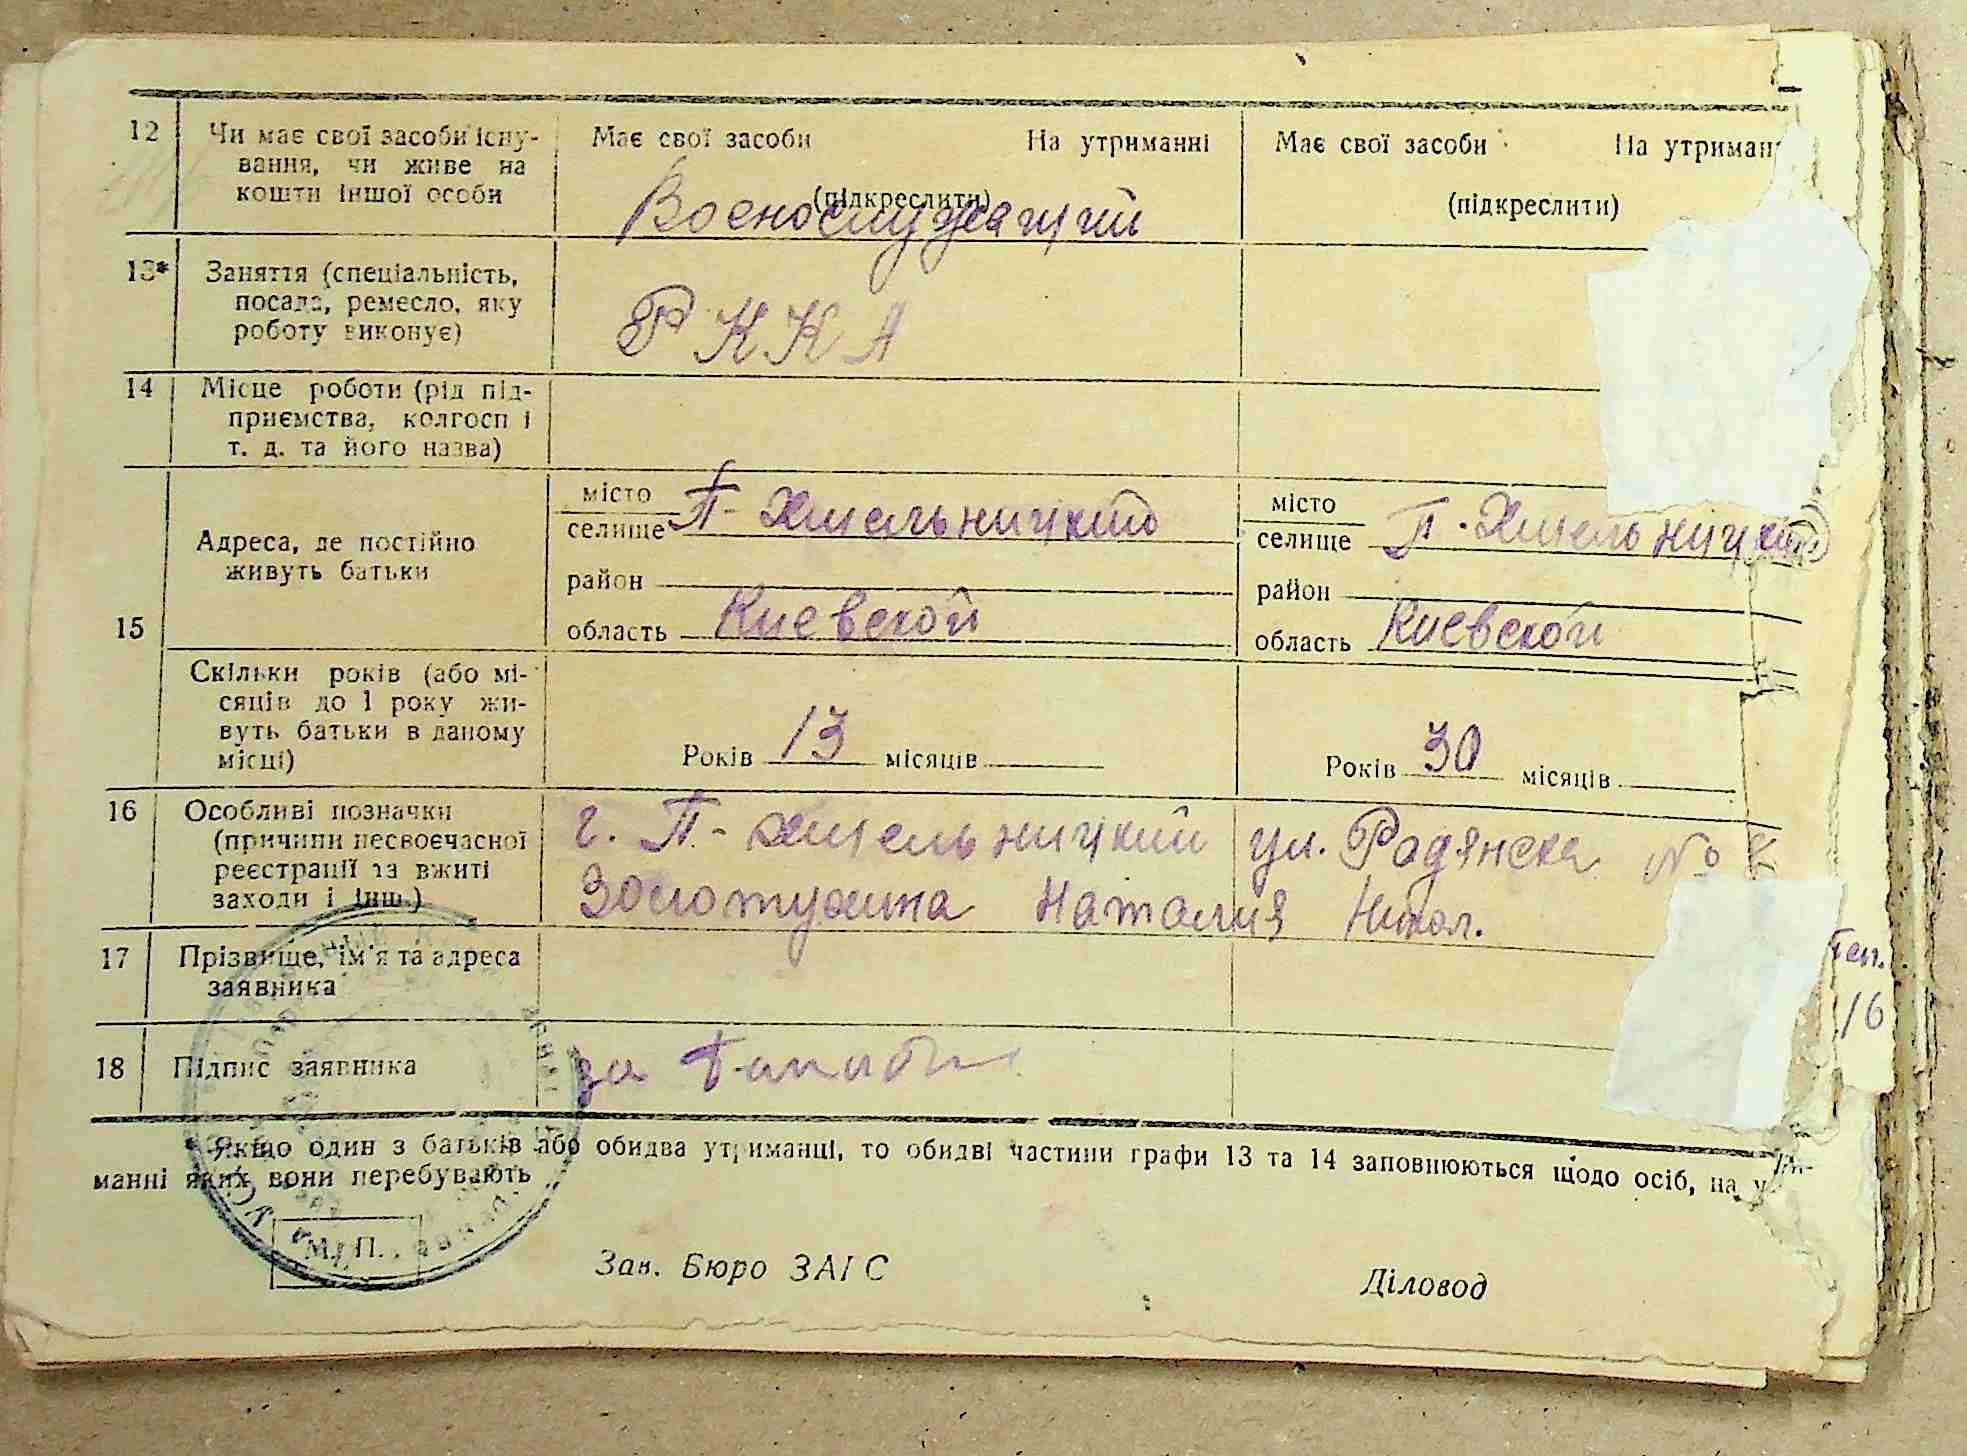 12
Чи має свої засоби існу-
вання, чи живе на
кошти іншої особи
Має свої засоби На утриманні
(підкреслити)
Военослужащий
Має свої засоби На утриман
(підкреслити)
13*
Заняття (спеціальність,
посада, ремесло, яку
роботу виконує)
РККА
14
Місце роботи (рід під-
приємства, колгосп і
т. д. та його назва)
15
Адреса, де постійно
живуть батьки
місто
селище П-Хмельницкий
район
область Киевской
місто
селище П.-Хмельницкий
район
область Киевской
Скільки років (або мі-
сяців до 1 року жи-
вуть батьки в даному
місці)
Років 13 місяців
Років 30 місяців
16
Особливі позначки
(причини несвоєчасної
реєстрації та вжиті
заходи і інш.)
г. П-Хмельницкий ул. Радянска №
Золотухина Наталия Никол.
17
Прізвище, ім'я та адреса
заявника
18
Підпис заявника
за
* Якщо один з батьків або обидва утриманці, то обидві частини графи 13 та 14 заповнюються щодо осіб, на у
манні яких вони перебувають
М. П.
Зав. Бюро ЗАГС
Діловод
16